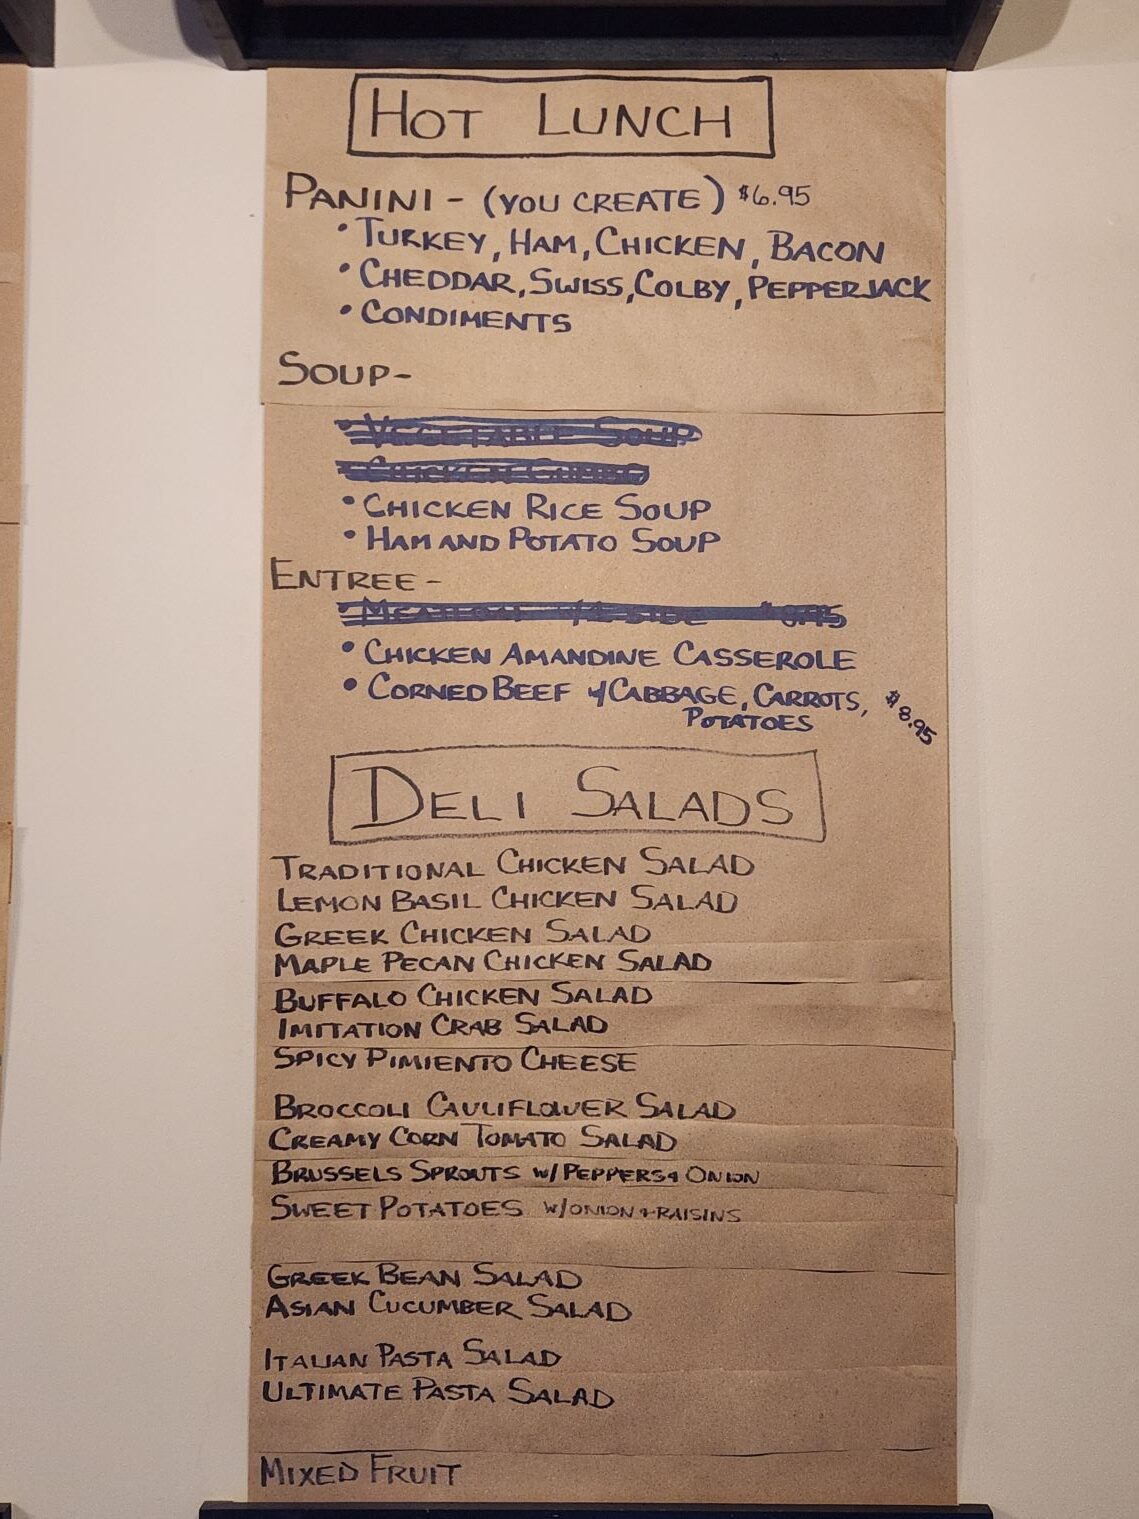 HOT LUNCH
PANINI - (YOU CREATE) $6.95
• TURKEY, HAM, CHICKEN, BACON
• CHEDDAR, SWISS, COLBY, PEPPERJACK
• CONDIMENTS
SOUP-
• VEGETABLE SOUP
• CHICKEN GUMBO
• CHICKEN RICE SOUP
• HAM AND POTATO SOUP
ENTREE -
• MEATLOAF W/ SIDE $8.95
• CHICKEN AMANDINE CASSEROLE
• CORNED BEEF W/CABBAGE, CARROTS, $8.95
POTATOES
DELI SALADS
TRADITIONAL CHICKEN SALAD
LEMON BASIL CHICKEN SALAD
GREEK CHICKEN SALAD
MAPLE PECAN CHICKEN SALAD
BUFFALO CHICKEN SALAD
IMITATION CRAB SALAD
SPICY PIMIENTO CHEESE
BROCCOLI CAULIFLOWER SALAD
CREAMY CORN TOMATO SALAD
BRUSSELS SPROUTS W/PEPPERS & ONION
SWEET POTATOES W/ONION & RAISINS
GREEK BEAN SALAD
ASIAN CUCUMBER SALAD
ITALIAN PASTA SALAD
ULTIMATE PASTA SALAD
MIXED FRUIT